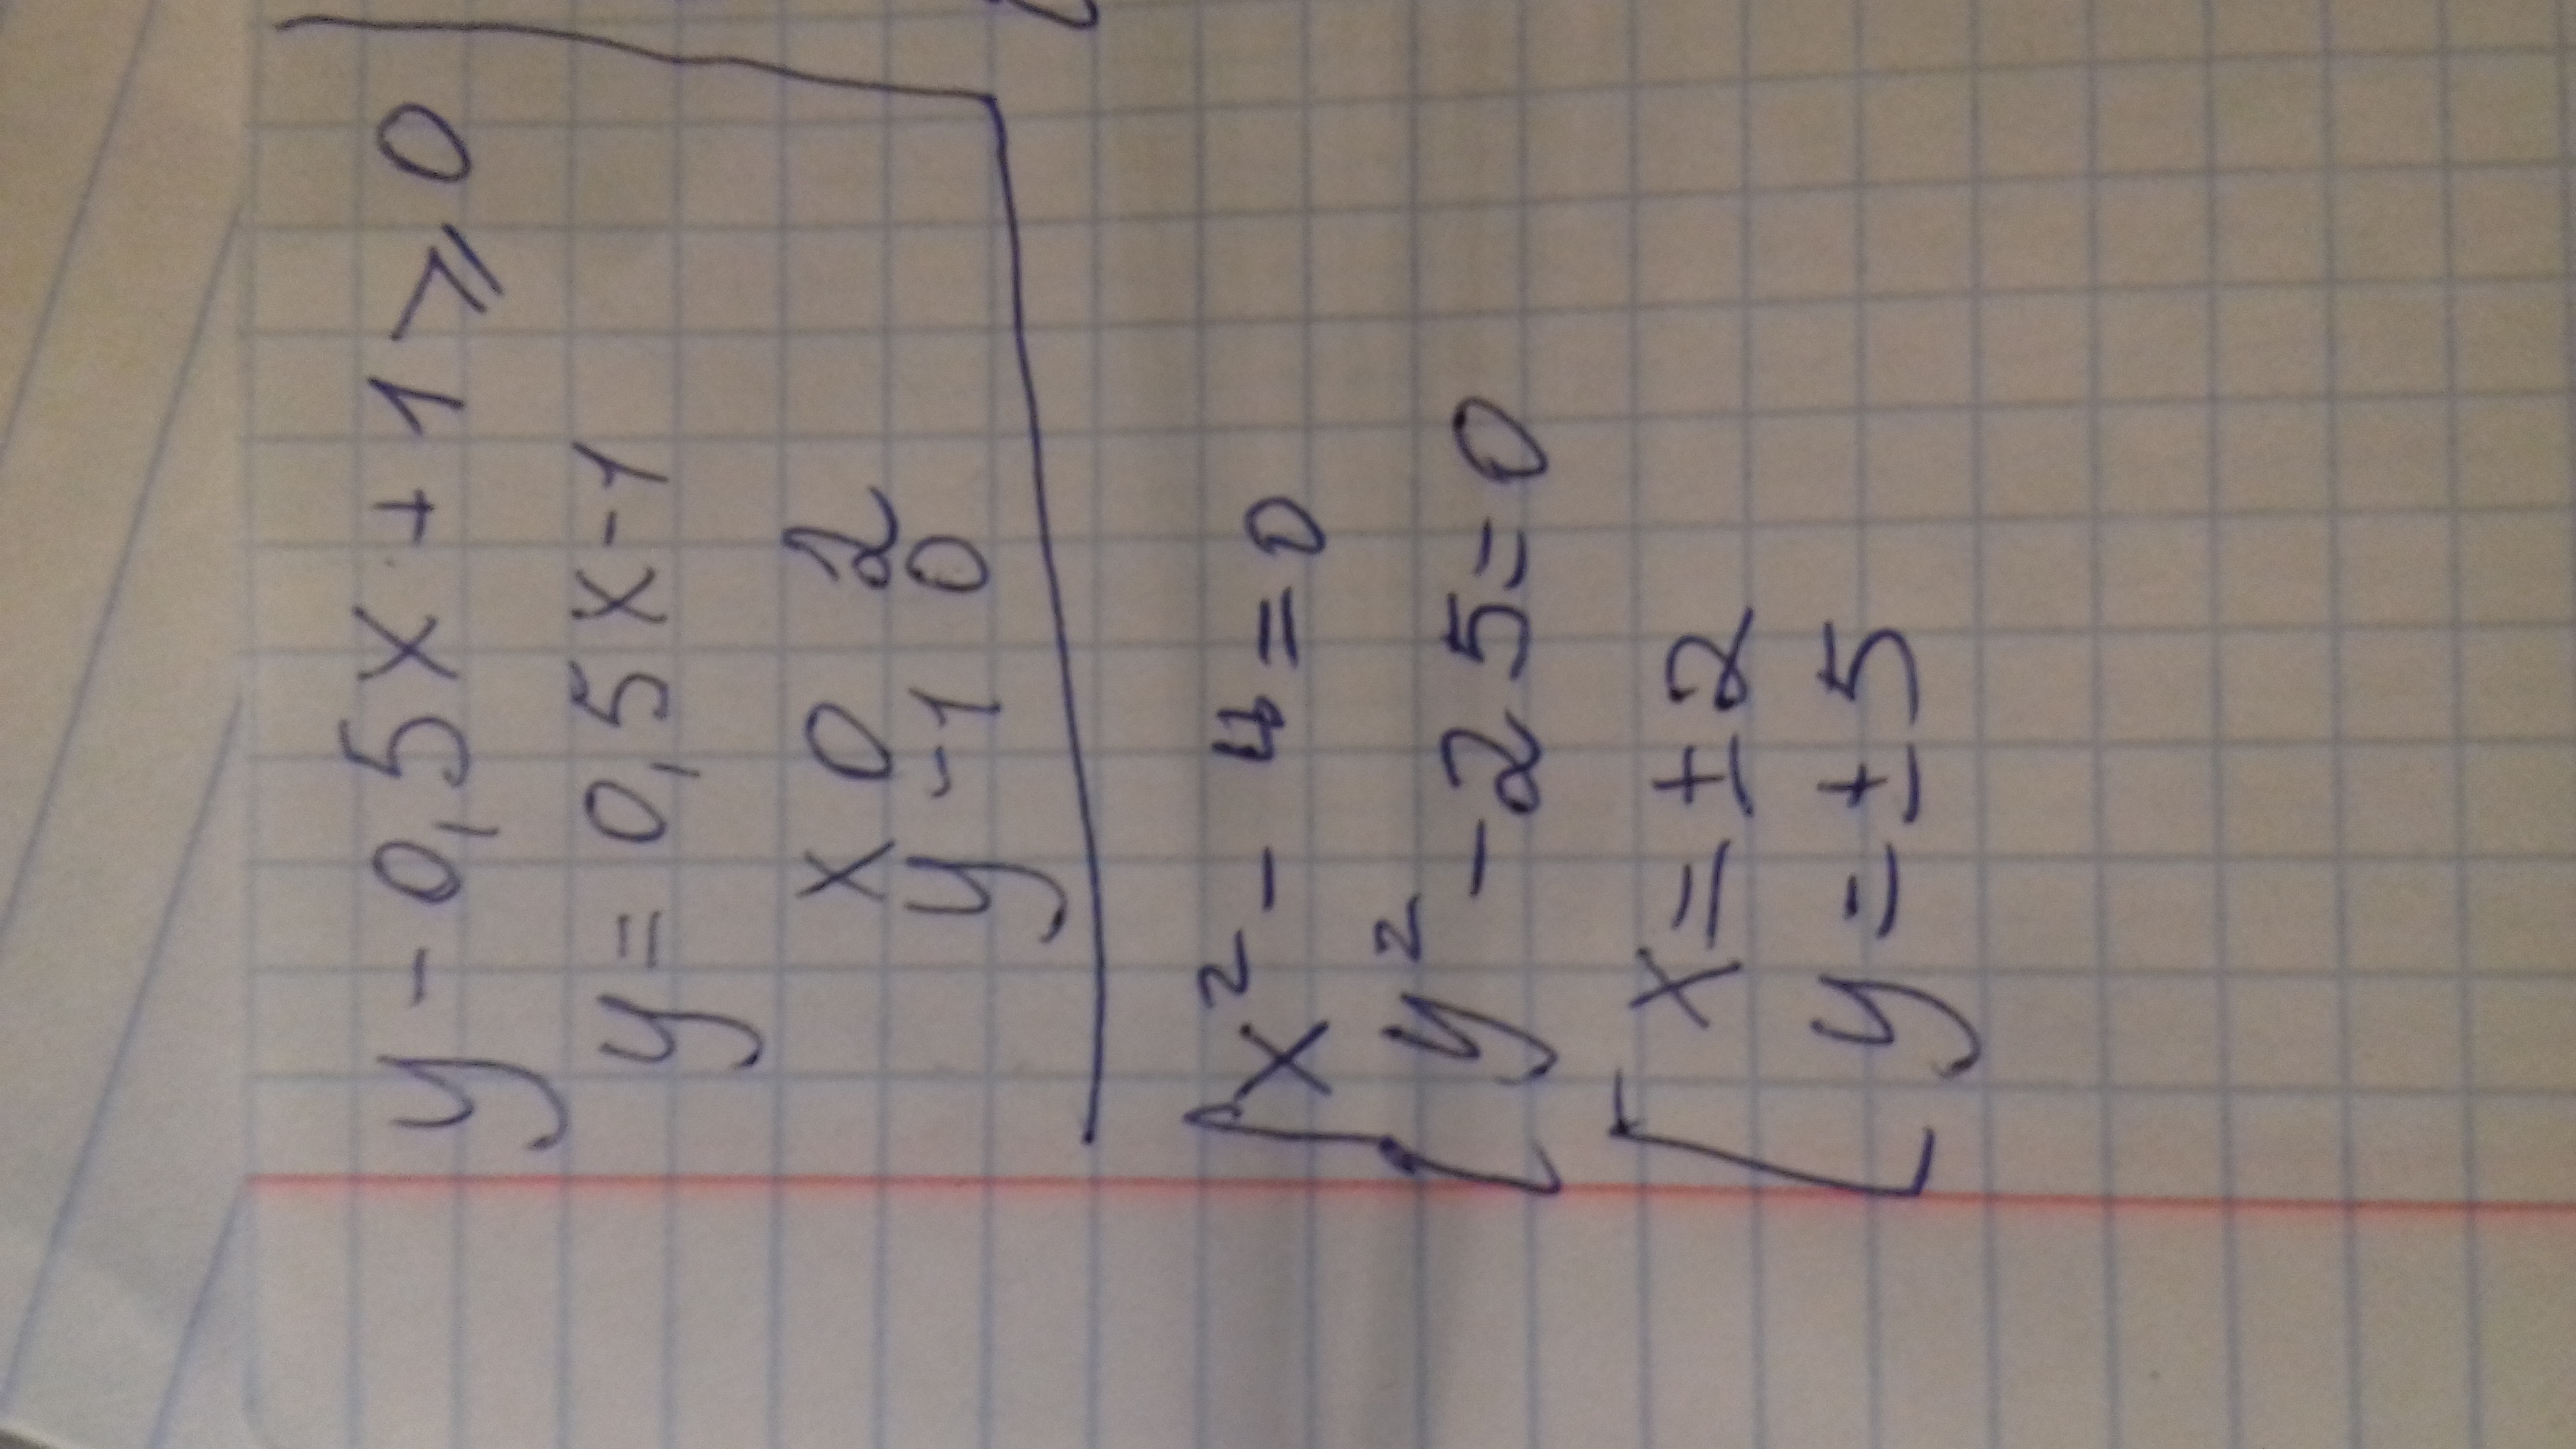 y - 0,5x + 1 ⩾ 0
y = 0,5x - 1
x 0 2
y -1 0
{ x² - 4 = 0
y² - 25 = 0
[ x = ±2
y = ±5